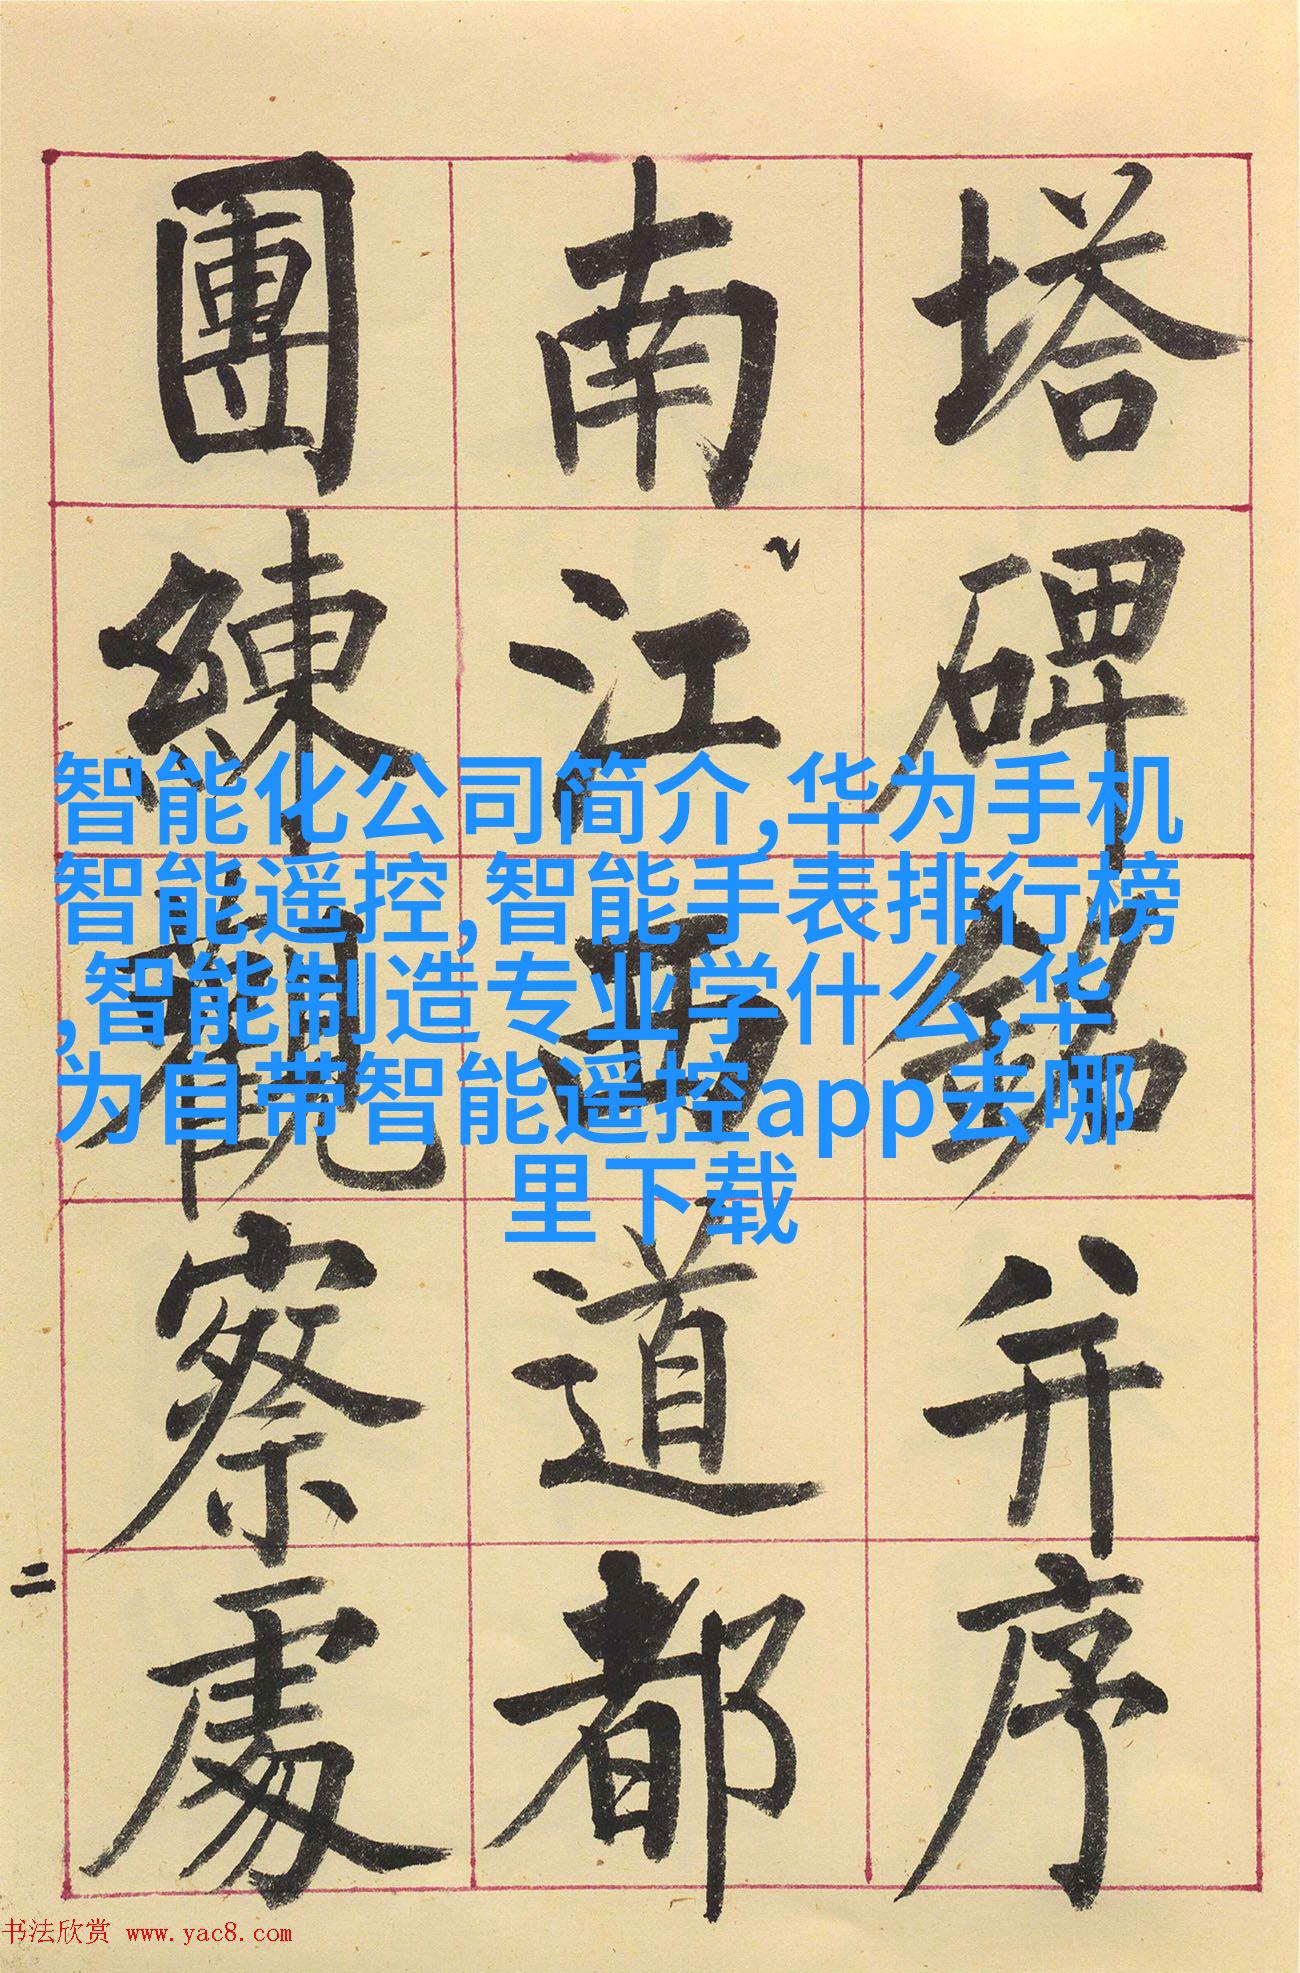 塔碑銘并序
南江西道都
團練觀察處
二
智能化公司简介,华为手机
智能遥控,智能手表排行榜
,智能制造专业学什么,华
为自带智能遥控app去哪
里下载
书法欣赏 www.yac8.com